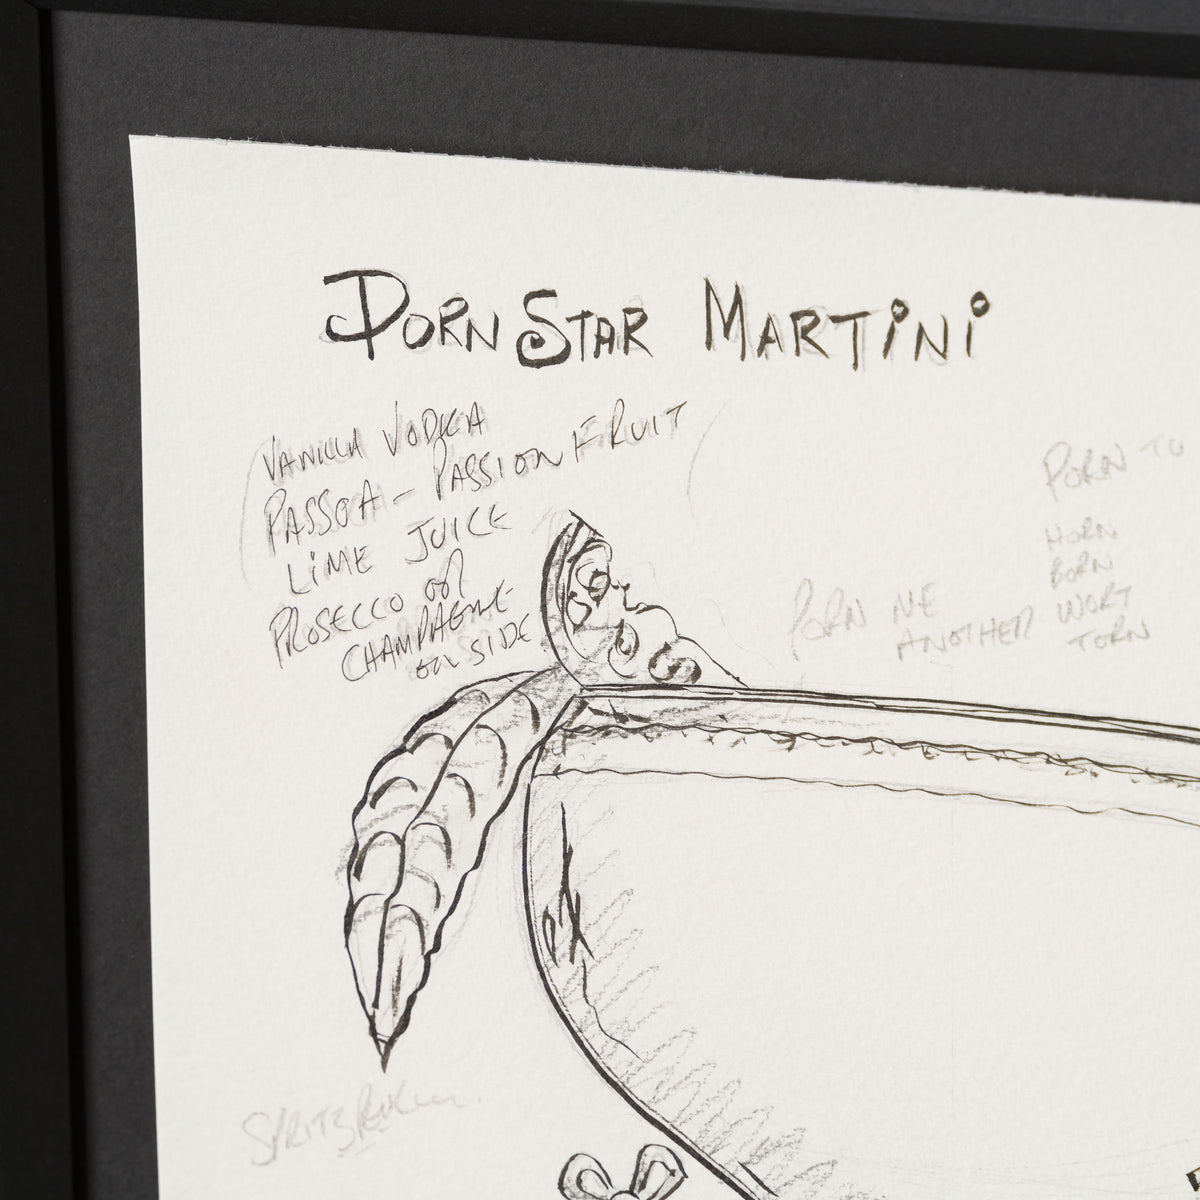 PORN STAR MARTINI
VANILLA VODKA
PASSOA - PASSION FRUIT
LIME JUICE
PROSECCO OR
CHAMPAGNE
ON SIDE
PORN TO
HORN
BORN
WORT
TORN
PORN ME
ANOTHER